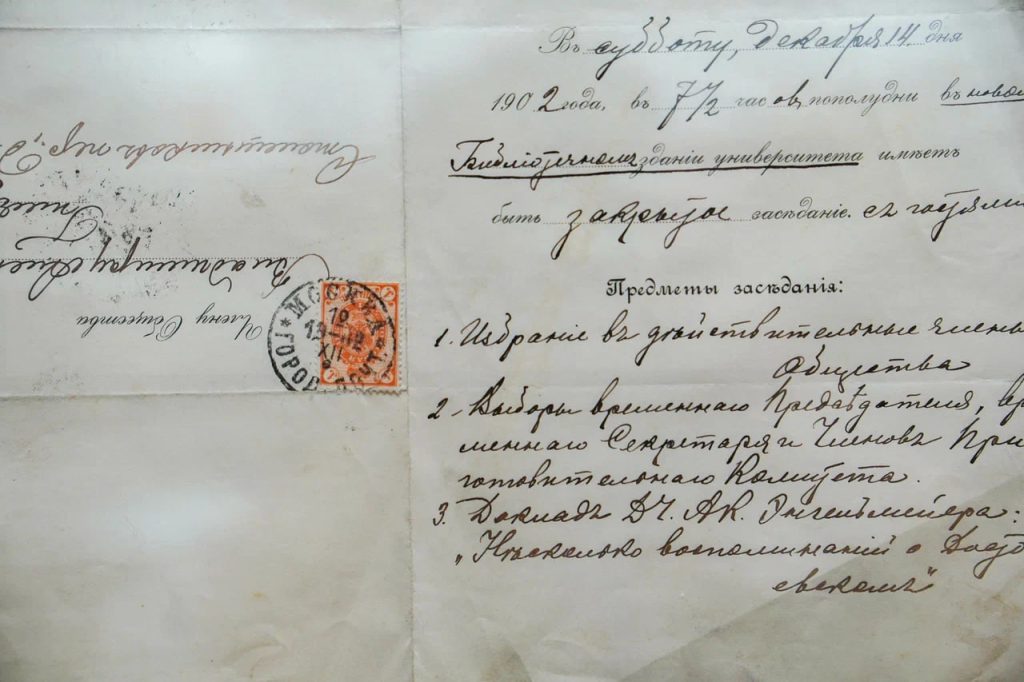 Въ субботу, декабря 14 дня
1902 года, въ 7½ часовъ пополудни въ новом
Библіотечномъ зданіи университета имѣетъ
быть закрытое засѣданіе. съ гостями
Предметы засѣданія:
1. Избраніе въ дѣйствительные члены
Общества
2. Выборы временнаго Предсѣдателя, вре
меннаго Секретаря и Членовъ При
готовительнаго Комитета.
3. Докладъ ДЧ. А.К. Энгельмейера:
„Нѣсколько воспоминаній о Досто
евскомъ"
Члену Общества
Владиміру
пер.
МОСКВА
ГОРОД. ПОЧТ.
XII